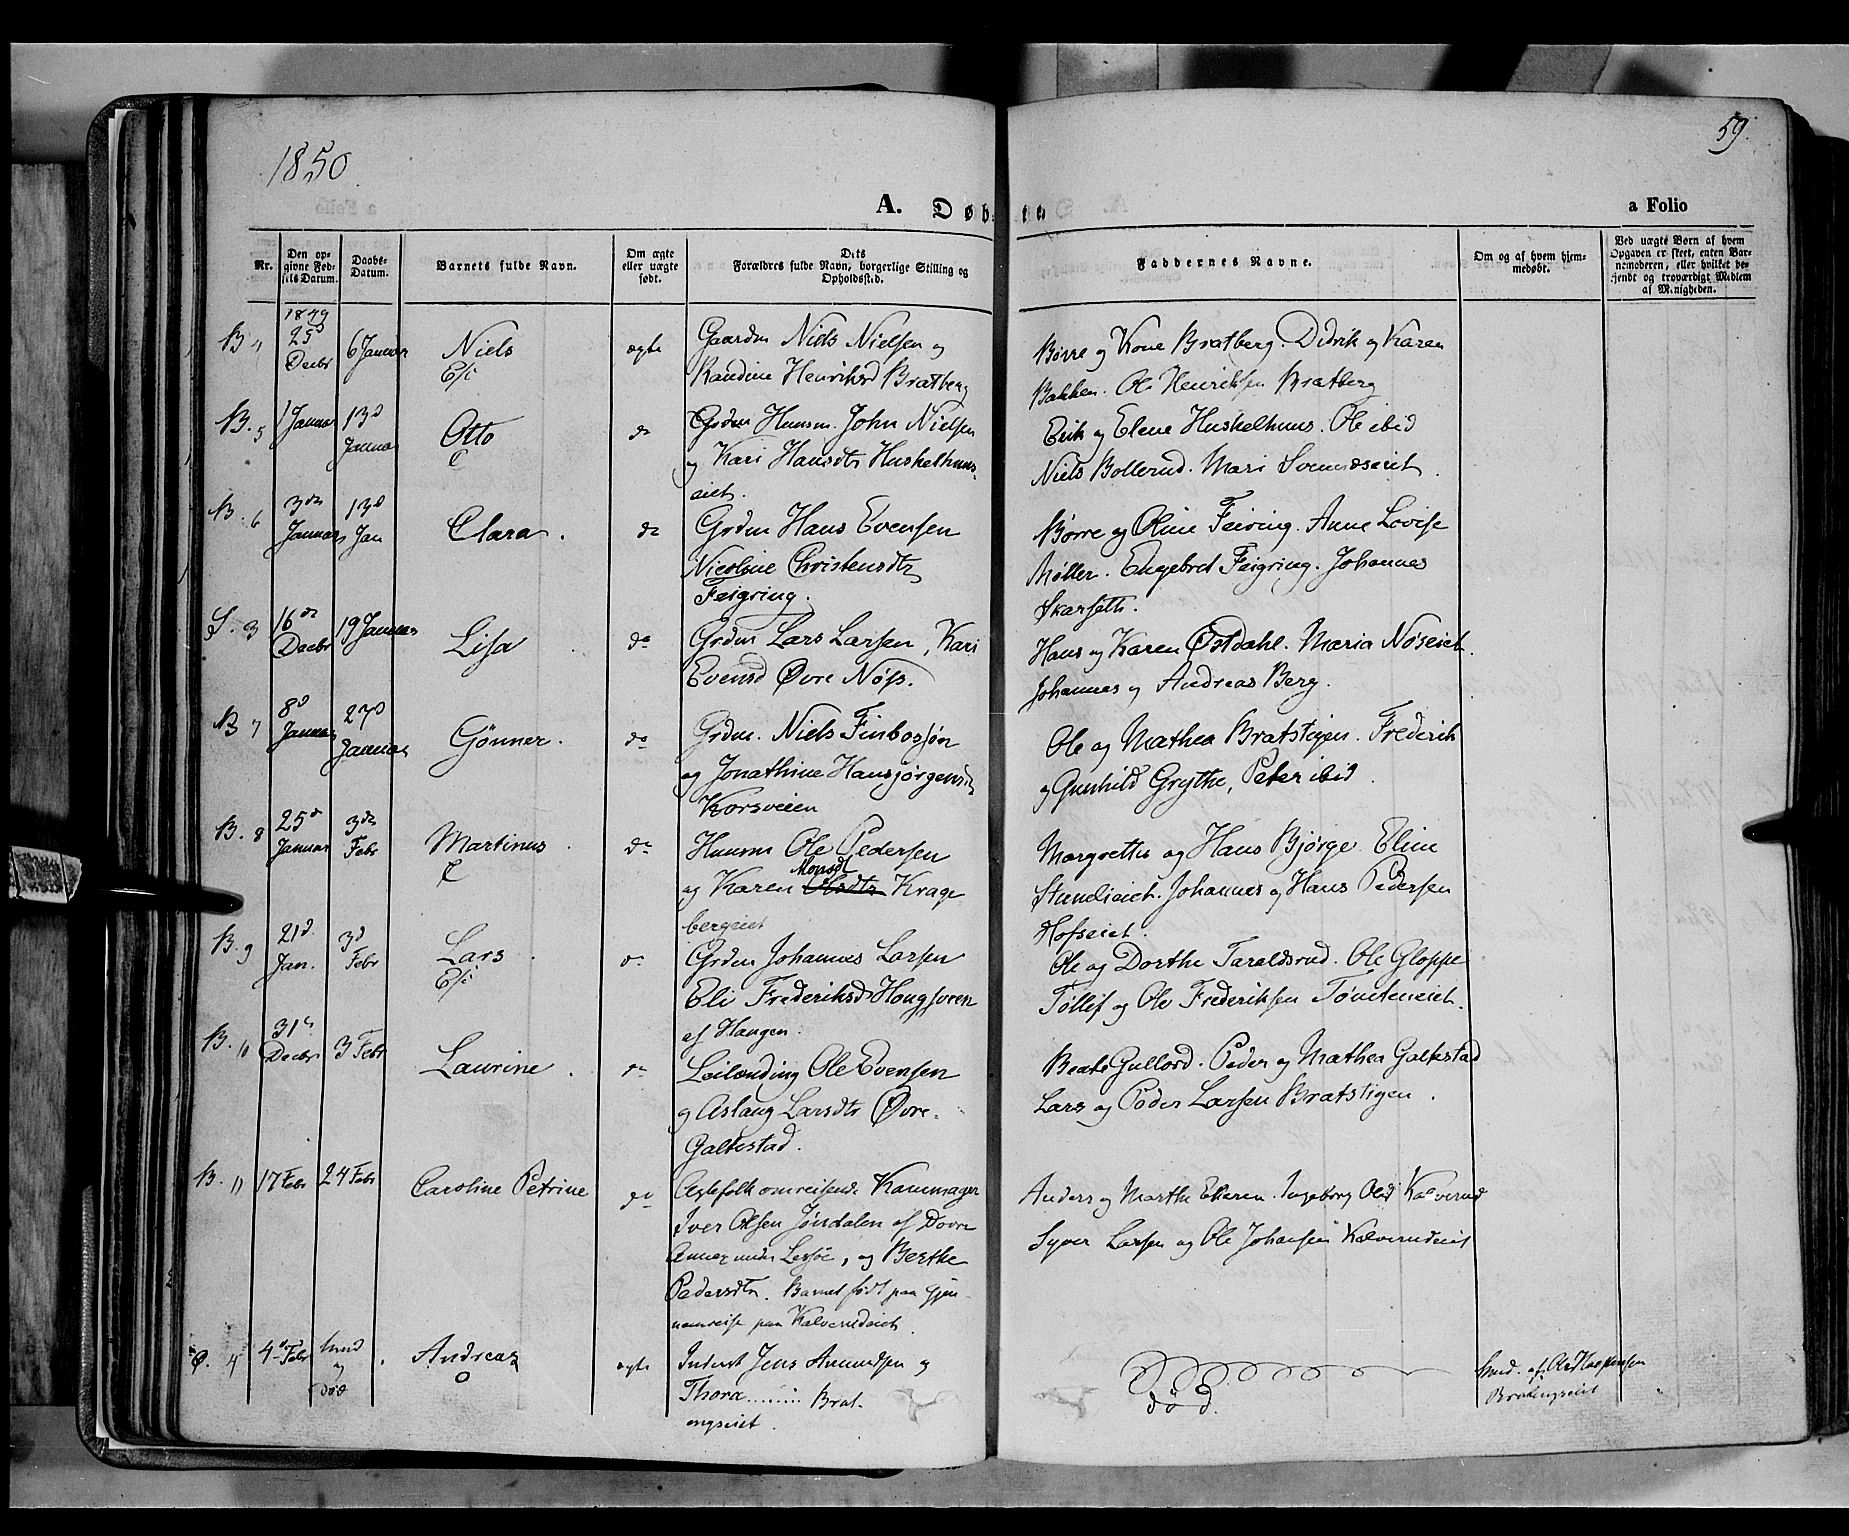 1850
59.
A. Døbte
a Folio
Nr.
Den opgivne Fødsels Datum.
Daabs-Datum.
Barnets fulde Navn.
Om ægte eller uægte født.
Dets Forældres fulde Navn, borgerlige Stilling og Opholdssted.
Faddernes Navne.
Om og af hvem hjemmedøbt.
Ved uægte Børn af hvem Opgaven er skeet, enten Barnemoderen, eller hvilket bekjendt og troværdigt Medlem af Menigheden.
1849
B. 4 25d Decbr 6 Januar Niels ægte
Gaardm Niels Nielsen og
Randine Henriksd Bratberg
Børre og Kone Bratberg. Didrik og Karen
Bakken. Ole Henriksen Bratberg
B. 5 1 Januar 13d Januar Otto do
Grdm Huusm. John Nielsen
og Kari Hansdtr Huskelhuus-
eiet.
Erik og Elene Huskelhuus. Ole ibid
Niels Bollerud. Mari Svendseiet.
B. 6 3die Januar 13d Jan Clara. do
Grdm Hans Evensen
Nicoline Christensdtr
Feigring.
Børre og Oline Feiring. Anne Lovise
Møller. Engebret Feigring. Johannes
Skarseth.
S. 3 16de Decbr 19 Januar Lisa do
Grdm Lars Larsen, Kari
Evensd Øvre Nøss.
Hans og Karen Østdahl. Maria Nøseiet.
Johannes og Andreas Berg.
B 7 8d Januar 27d Januar Gønner. do
Grdm. Niels Finbosjøn
og Jonathine Hansjørgensd
Korsveien
Ole og Mathea Bratstigen. Frederik
og Gunhild Grythe, Peter ibid.
B. 8 25d Januar 3die Febr Martinus. do
Huusm Ole Pedersen
og Karen Monsdt Olsdtr Krage
bergeiet
Margrethe og Hans Bjørge. Eline
Stendieiet. Johannes og Hans Pedersen
Hofseiet.
B. 9 21d Jan. 3d Febr Lars. do
Grdm Johannes Larsen
Eli Frederiksd Hougsveen
af Haugen.
Ole og Dorthe Taraldsrud. Ole Gloppe
Tollef og Ole Frederiksen Tømteeiet.
B. 10 31te Decbr 3 Febr Laurine. do
Leilænding Ole Evensen
og Aslaug Larsdtr Øvre-
Galtestad.
Beate Gullord. Peder og Mathea Galtestad
Lars og Peder Larsen Bratstigen.
B. 11 17 Febr 24 Febr Caroline Petrine do
Ægtefolk omreisende Kammager
Iver Olsen Jøndalen af Dovre
Annex under Lessøe, og Berthe
Pedersdtr. Barnet født paa Gjen-
nemreise paa Kalverudeiet.
Anders og Marthe Ekeren. Ingeborg Olsd Kalverud
Syver Larsen og Ole Johansen Kalverudeiet
Ø. 4 4de Febr hmd og død Andreas ægte
Inderst Jens Amundsen og
Thora ........ Brat-
engseiet.
død.
hmd. af Ole
Bratengseiet